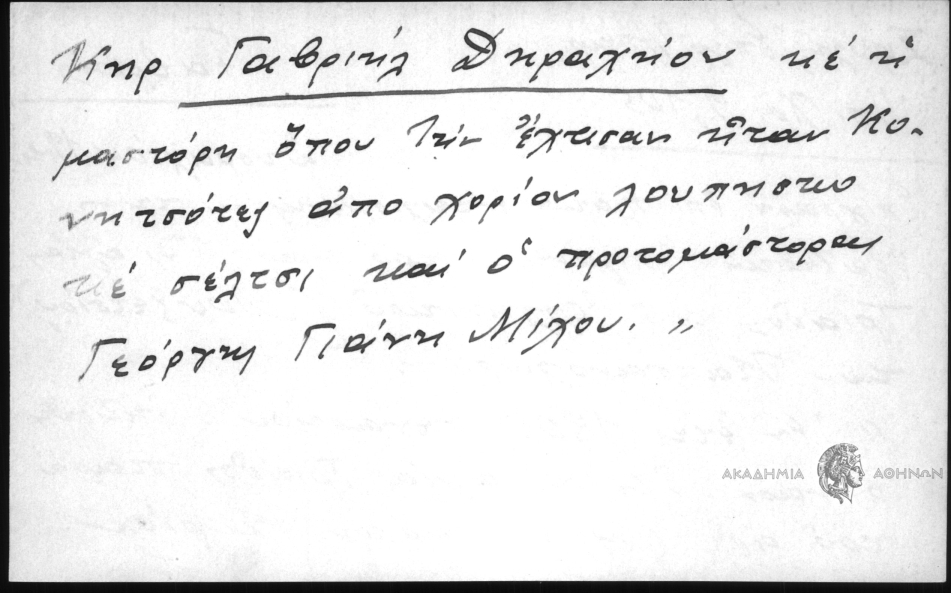 Κηρ Γαβριήλ Δηραχήον κέ ἡ
μαστόρη ὅπου τήν ἔχτισαν ἦταν Κο-
νητσότες ἀπο χορίον λουπηστιο
κέ σέλτσι καί ὁ προτομάστορας
Γεόργης Γιάνη Μίχου. "
ΑΚΑΔΗΜΙΑ ΑΘΗΝΩΝ